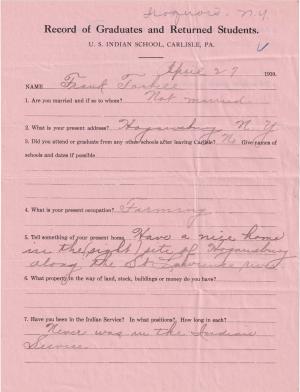 Iroquois, N.Y.
Record of Graduates and Returned Students.
U. S. INDIAN SCHOOL, CARLISLE, PA.
April 27 1910.
NAME Frank Tarbell
1. Are you married and if so to whom? Not married
2. What is your present address? Hogansburg N. Y.
3. Did you attend or graduate from any other schools after leaving Carlisle? No Give names of
schools and dates if possible
4. What is your present occupation? Farming
5. Tell something of your present home. Have a nice home
in the right site of Hogansburg
along the St. Lawrence river
6. What property in the way of land, stock, buildings or money do you have?
7. Have you been in the Indian Service? In what positions? How long in each?
Never was in the Indian
Service